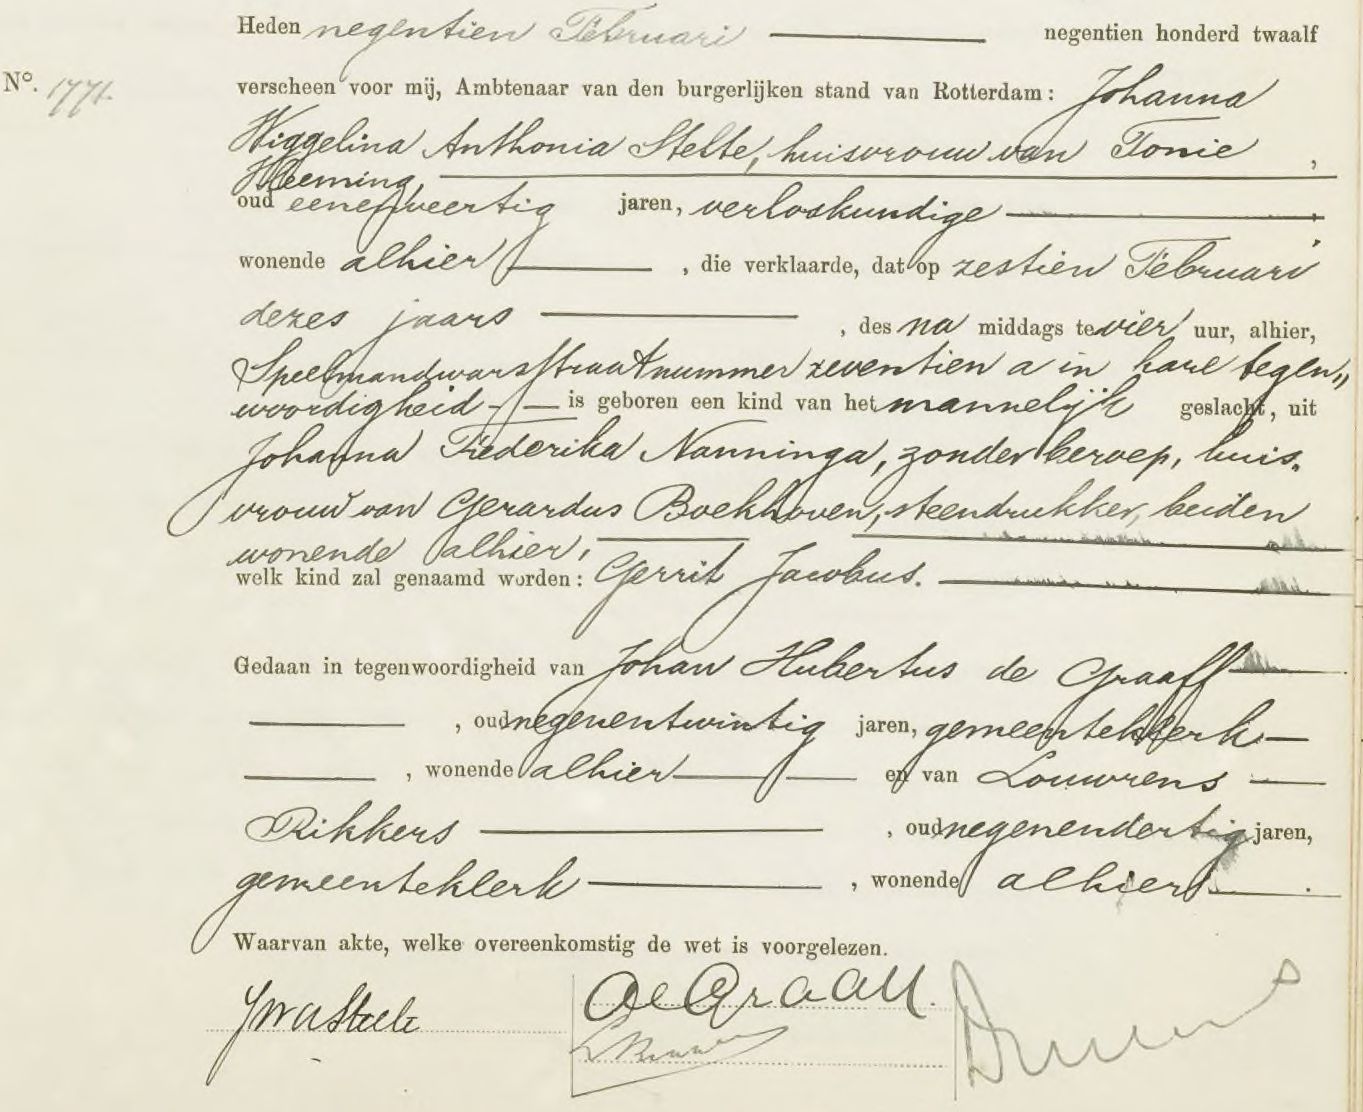 Heden negentien Februari negentien honderd twaalf
Nº. 1771.
verscheen voor mij, Ambtenaar van den burgerlijken stand van Rotterdam: Johanna
Wiggelina Anthonia Stelte, huisvrouw van Tonie
Heeming,
oud eenenveertig jaren, verloskundige
wonende alhier, die verklaarde, dat op zestien Februari
dezes jaars, des na middags te vier uur, alhier,
Speelmandwarsstraat nummer zeventien a in hare tegen„
woordigheid is geboren een kind van het mannelijk geslacht, uit
Johanna Frederika Nanninga, zonder beroep, huis„
vrouw van Gerardus Boekhoven, steendrukker, beiden
wonende alhier,
welk kind zal genaamd worden: Gerrit Jacobus.
Gedaan in tegenwoordigheid van Johan Hubertus de Graaff
, oud negenentwintig jaren, gemeenteklerk
, wonende alhier en van Louwrens
Rikkers, oud negenendertig jaren,
gemeenteklerk, wonende alhier.
Waarvan akte, welke overeenkomstig de wet is voorgelezen.
de Graaff.